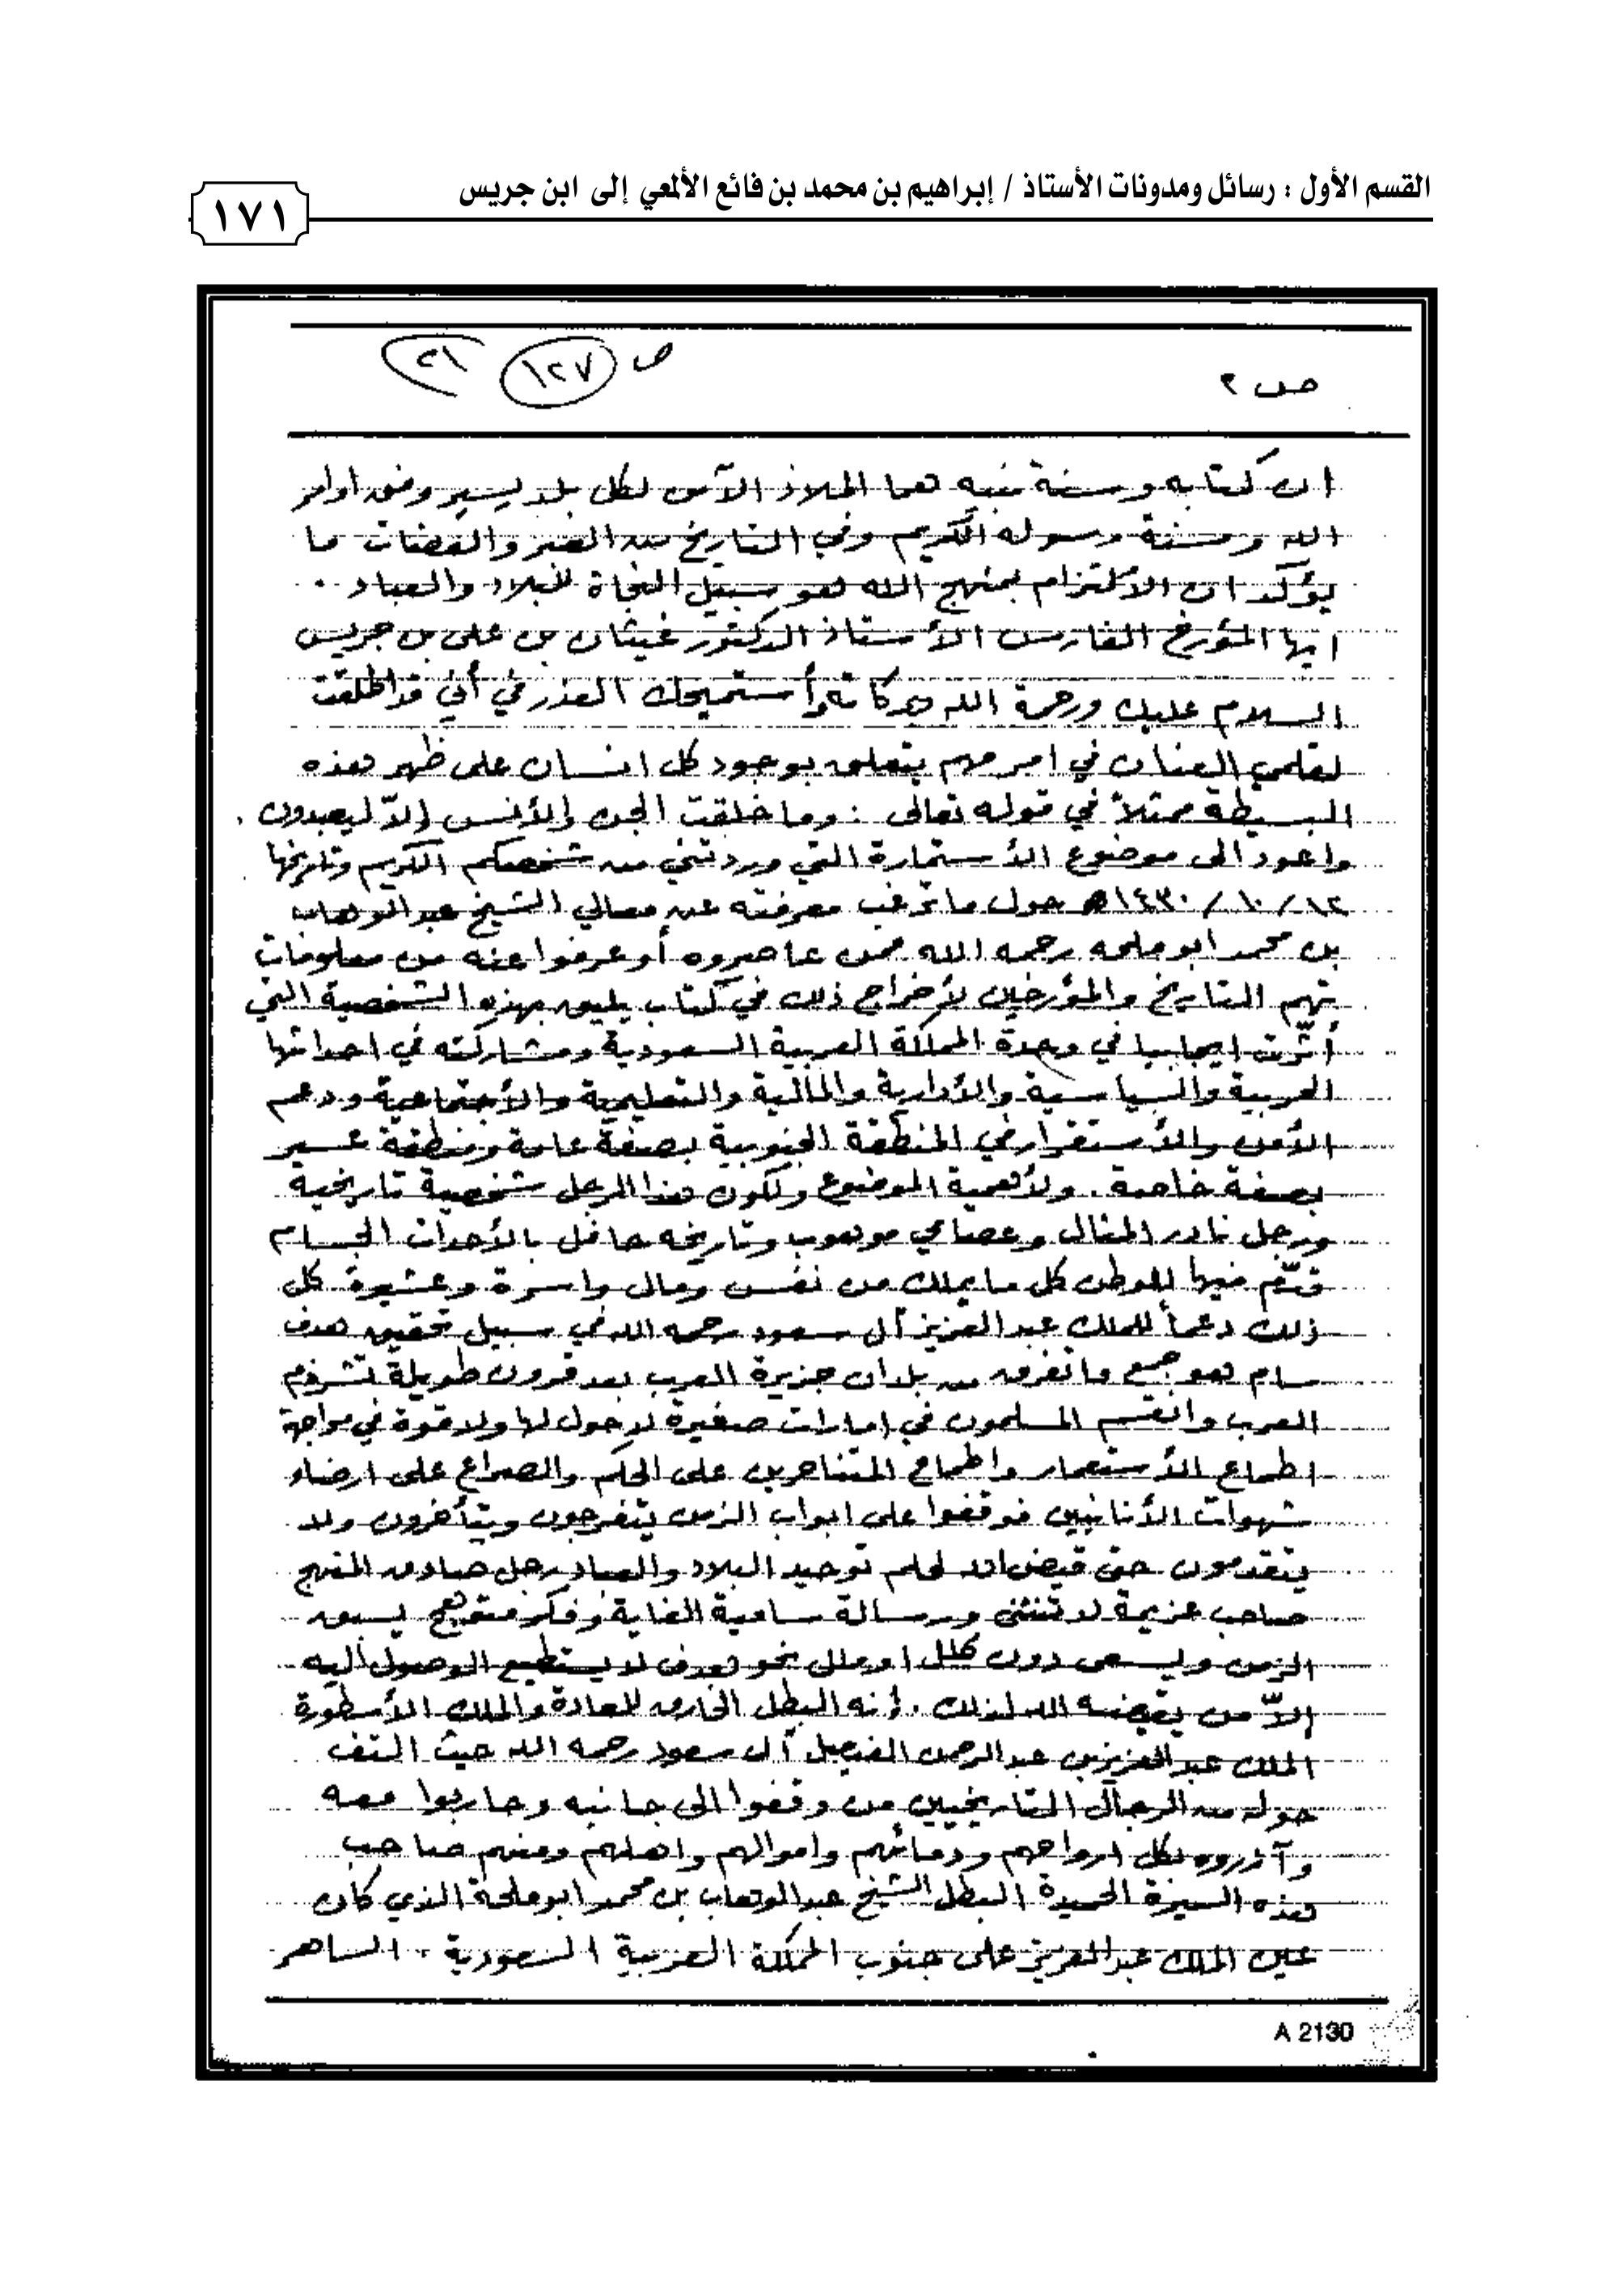 القسم الأول : رسائل ومدونات الأستاذ / إبراهيم بن محمد بن فائع الألمعي إلى ابن جريس
١٧١
ص ١٢٧ ٢١
ص ٢
ان كتابه وسنة نبيه هما الملاذ الآمن لكل بلد يسير وفق اوامر
الله وسنة رسوله الكريم وفي التاريخ من العبر والعضات ما
يؤكد ان الألتزام بمنهج الله هو سبيل النجاة للبلاد والعباد .
ايها المؤرخ الفارس الأستاذ الدكتور غيثان بن على بن جريس
السلام عليك ورحمة الله وبركاته وأستميحك العذر في أني قد اطلقت
لقلمي العنان في امر مهم يتعلق بوجود كل انسان على ظهر هذه
البسيطة ممثلاً في قوله تعالى : وما خلقت الجن والأنس إلاّ ليعبدون .
واعود الى موضوع الأستمارة التي وردتني من شخصكم الكريم وتاريخها
١٢ / ١٠ / ١٤٣٠هـ حول ما ترغب معرفته عن معالي الشيخ عبدالوهاب
بن محمد ابوملحه رحمه الله ممن عاصروه أو عرفوا عنه من معلومات
تهم التاريخ والمؤرخين لأخراج ذلك في كتاب يليق بهذه الشخصية التي
أثّرت ايجابيا في وحدة المملكة العربية السعودية ومشاركته في احداثها
الحربية والسياسية والأدارية والمالية والتعليمية والأجتماعية ودعم
الأمن والأستقرار في المنطقة الجنوبية بصفة عامة ومنطقة عسير
بصفة خاصة . ولأهمية الموضوع ولكون هذا الرجل شخصية تاريخية
ورجل نادر المثال وعصامي موهوب وتاريخه حافل بالأحداث الجسام
قدّم فيها للوطن كل ما يملك من نفس ومال واسرة وعشيرة كل
ذلك دعماً للملك عبد العزيز آل سعود رحمه الله في سبيل تحقيق هدف
سام هو جمع ما تفرق من بلدان جزيرة العرب بعد قرون طويلة تشرذم
العرب وانقسم المسلمون في إمارات صغيرة لاحول لها ولا قوة في مواجهة
اطماع الأستعمار واطماع المتناحرين على الحكم والصراع على ارضاء
شهوات الأنانيين فوقفوا على ابواب الزمن يتفرجون ويتأخرون ولا
يتقدمون حتى قيض الله لحلم توحيد البلاد والعباد رجل صادق المنهج
صاحب عزيمة لا تنثني ورسالة سامية الغاية وفكر متوهج يسبق
الزمن ويسعى دون كلل او ملل نحو هدف لا يستطيع الوصول أليه
إلاّ من يقيضه الله لذلك . إنه البطل الخارق للعادة والملك الأسطورة
الملك عبدالعزيز بن عبدالرحمن الفيصل آل سعود رحمه الله حيث التف
حوله من الرجال التاريخيين من وقفوا الى جانبه وحاربوا معه
وآزروه بكل ارواحهم ودمائهم واموالهم واهلهم ومنهم صاحب
هذه السيرة الحميدة البطل الشيخ عبدالوهاب بن محمد ابوملحة الذي كان
عين الملك عبدالعزيز على جنوب المملكة العربية السعودية . الساهر
A 2130